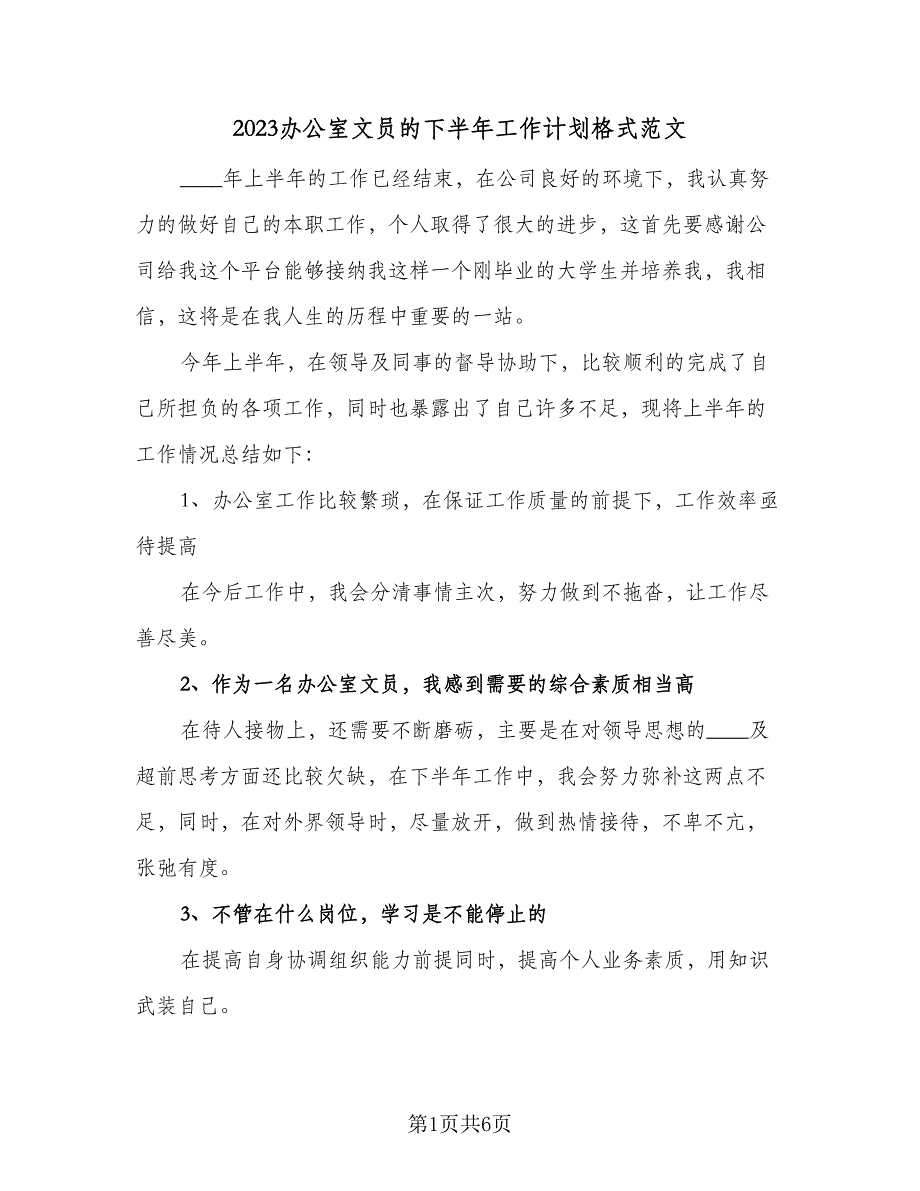 2023办公室文员的下半年工作计划格式范文
____年上半年的工作已经结束，在公司良好的环境下，我认真努
力的做好自己的本职工作，个人取得了很大的进步，这首先要感谢公
司给我这个平台能够接纳我这样一个刚毕业的大学生并培养我，我相
信，这将是在我人生的历程中重要的一站。
今年上半年，在领导及同事的督导协助下，比较顺利的完成了自
己所担负的各项工作，同时也暴露出了自己许多不足，现将上半年的
工作情况总结如下：
1、办公室工作比较繁琐，在保证工作质量的前提下，工作效率亟
待提高
在今后工作中，我会分清事情主次，努力做到不拖沓，让工作尽
善尽美。
2、作为一名办公室文员，我感到需要的综合素质相当高
在待人接物上，还需要不断磨砺，主要是在对领导思想的____及
超前思考方面还比较欠缺，在下半年工作中，我会努力弥补这两点不
足，同时，在对外界领导时，尽量放开，做到热情接待，不卑不亢，
张弛有度。
3、不管在什么岗位，学习是不能停止的
在提高自身协调组织能力前提同时，提高个人业务素质，用知识
武装自己。
第1页共6页